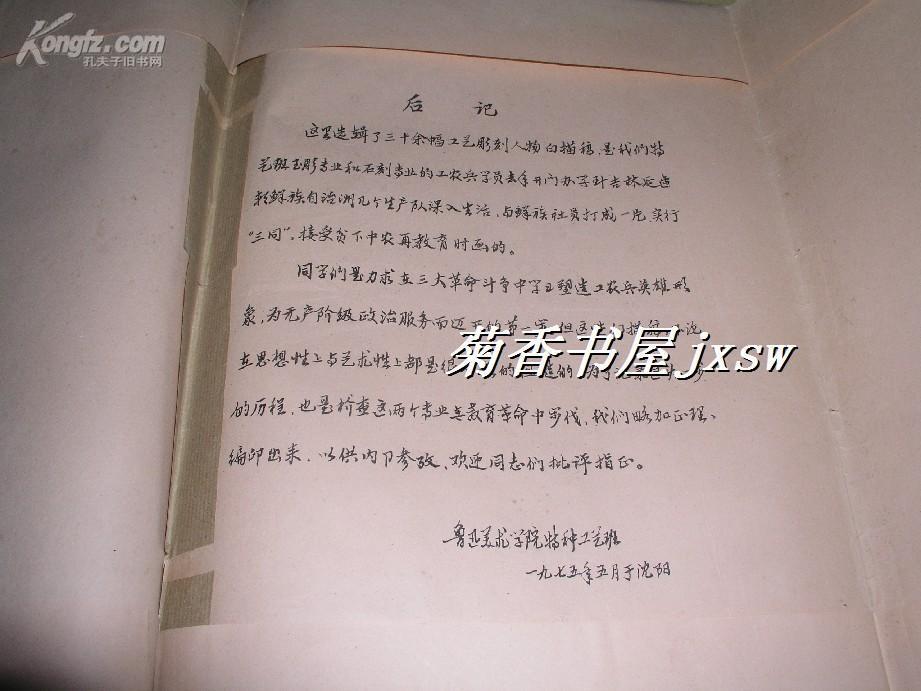 Kongfz.com
孔夫子旧书网
后 记
这里选辑了三十余幅工艺雕刻人物白描稿,是我们特
艺班玉雕专业和石刻专业的工农兵学员去年开门办学到吉林延边
朝鲜族自治洲几个生产队深入生活,与鲜族社员打成一片,实行
“三同”,接受贫下中农再教育时画的。
同学们是力求在三大革命斗争中学习塑造工农兵英雄形
象,为无产阶级政治服务而迈开的第一步,但这些白描稿
在思想性上与艺术性上都是很 的 的,为了
的历程,也是检查这两个专业在教育革命中步伐,我们略加正理、
编印出来,以供内部参考,欢迎同志们批评指正。
菊香书屋jxsw
鲁迅美术学院特种工艺班
一九七五年五月于沈阳